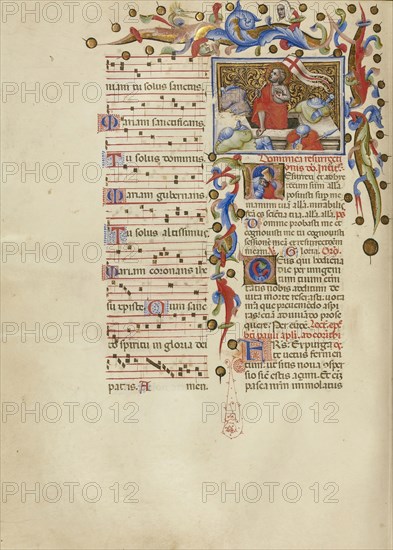 niam tu solus sanctus.
Mariam sanctificans.
Tu solus dominus.
Mariam gubernans.
Tu solus altissimus.
Mariam coronans ihe
su christe. Cum sanc
to spiritu in gloria dei
patris. A men.
Dominica resurrecti
onis
Resurrexi et adhuc
tecum sum alla.
posuisti sup me
manum tua alla. mirabilis
scientia tua alla. alla. ps
Domine probasti me et
cognovisti me tu cognovisti
sessione mea et resurrectioem
mea. Gloria. Oro.
Deus qui hodierna
die per unigeni
tum tuum eterni
tatis nobis aditum de
victa morte reserasti. vota
nra que preveniendo aspi
ras: etiam adiuvando prose
quere. Per eude. Lectio epl
beati pauli apli. ad corinthi
FRS: Expurgate
vetus fermen
tum: ut sitis nova consper
sio sicut estis açimi. Et eni
pasca nrm immolatus
PHOTO 12
PHOTO 12
PHOTO 12
PHOTO 12
PHOTO 12
PHOTO 12